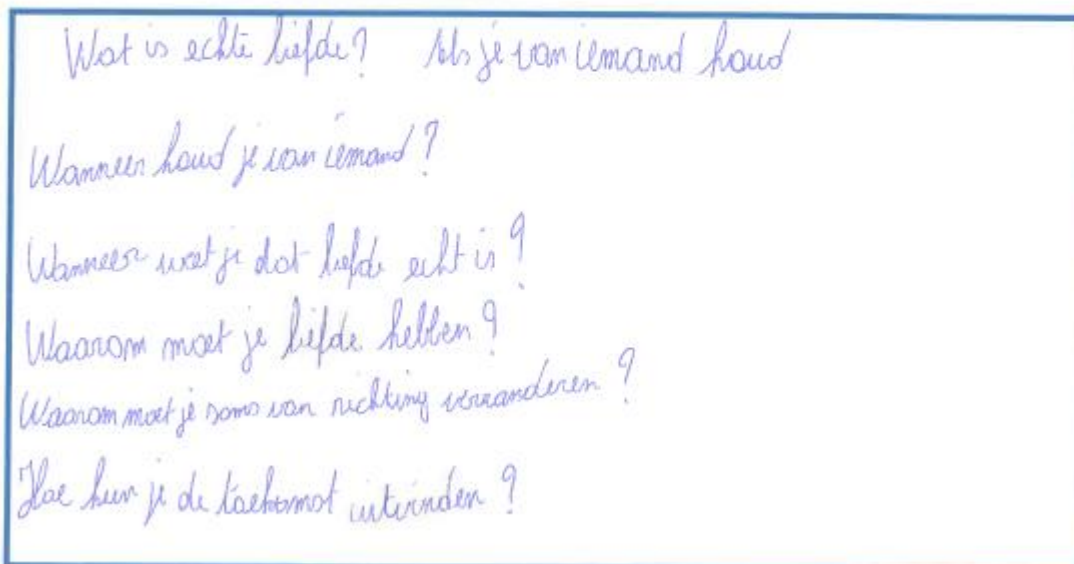 Wat is echte liefde? Als je van iemand houd
Wanneer houd je van iemand?
Wanneer weet je dat liefde echt is?
Waarom moet je liefde hebben?
Waarom moet je soms van richting verranderen?
Hoe kun je de toekomst uitvinden?